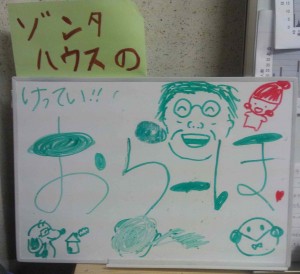 ゾンタ
ハウスの
けってい!!
おらーほ